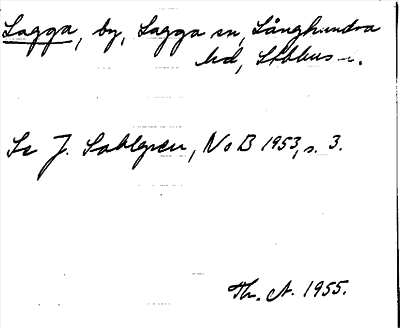 Lagga, by, Lagga sn, Långhundra
hd, Sthlms l.
Se J. Sahlgren, NoB 1953, s. 3.
Th. A. 1955.